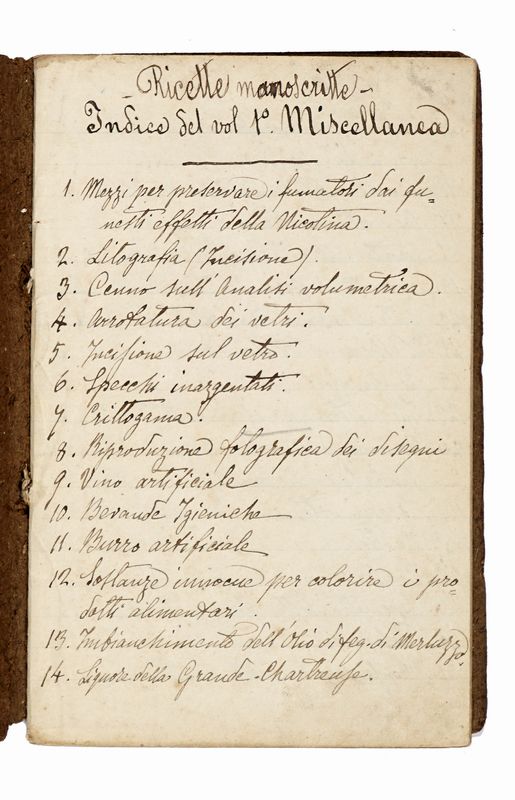 - Ricette manoscritte -
Indice del vol 1º. Miscellanea
1. Mezzi per preservare i fumatori dai fu=
nesti effetti della Nicotina.
2. Litografia (Incisione).
3. Cenno sull'Analisi volumetrica.
4. Arrotatura dei vetri.
5. Incisione sul vetro.
6. Specchi inargentati.
7. Crittogama.
8. Riproduzione fotografica dei disegni
9. Vino artificiale
10. Bevande Igieniche
11. Burro artificiale
12. Sostanze innocue per colorire i pro=
dotti alimentari.
13. Imbianchimento dell'Olio di feg. di Merluzzo.
14. Liquore della Grande-Chartreuse.